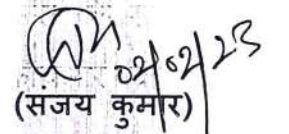 02/02/23
(संजय कुमार)